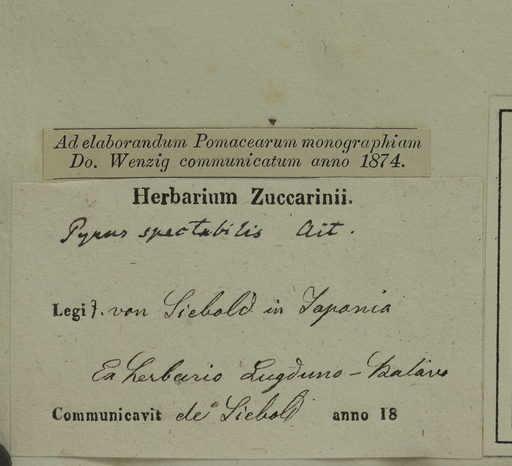 Ad elaborandum Pomacearum monographiam
Do. Wenzig communicatum anno 1874.
Herbarium Zuccarinii.
Pyrus spectabilis Ait.
Legit. von Siebold in Japonia
Ex herbario Lugduno-Batavo
Communicavit de Siebold anno 18